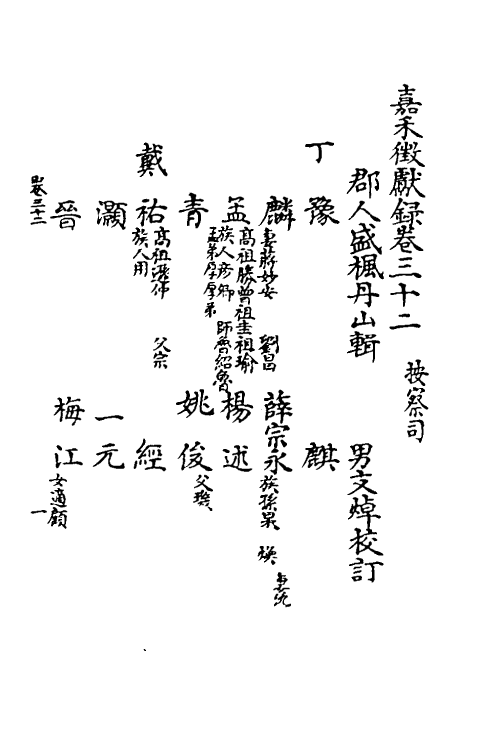 嘉禾徵獻錄卷三十二 按察司
郡人盛楓丹山輯 男文焯校訂
丁豫 麒
麟 妻蔣妙安 劉昌 薛宗永 族孫杲 煥
孟 高祖勝曾祖圭祖瑜 族人彥卿 師曾紹魯 楊述
青 孟弟厚 姚俊 父璣
戴祐 高祖 族人用 父宗 經
灝 一元
晉 梅江 女適顧
卷三十二 一